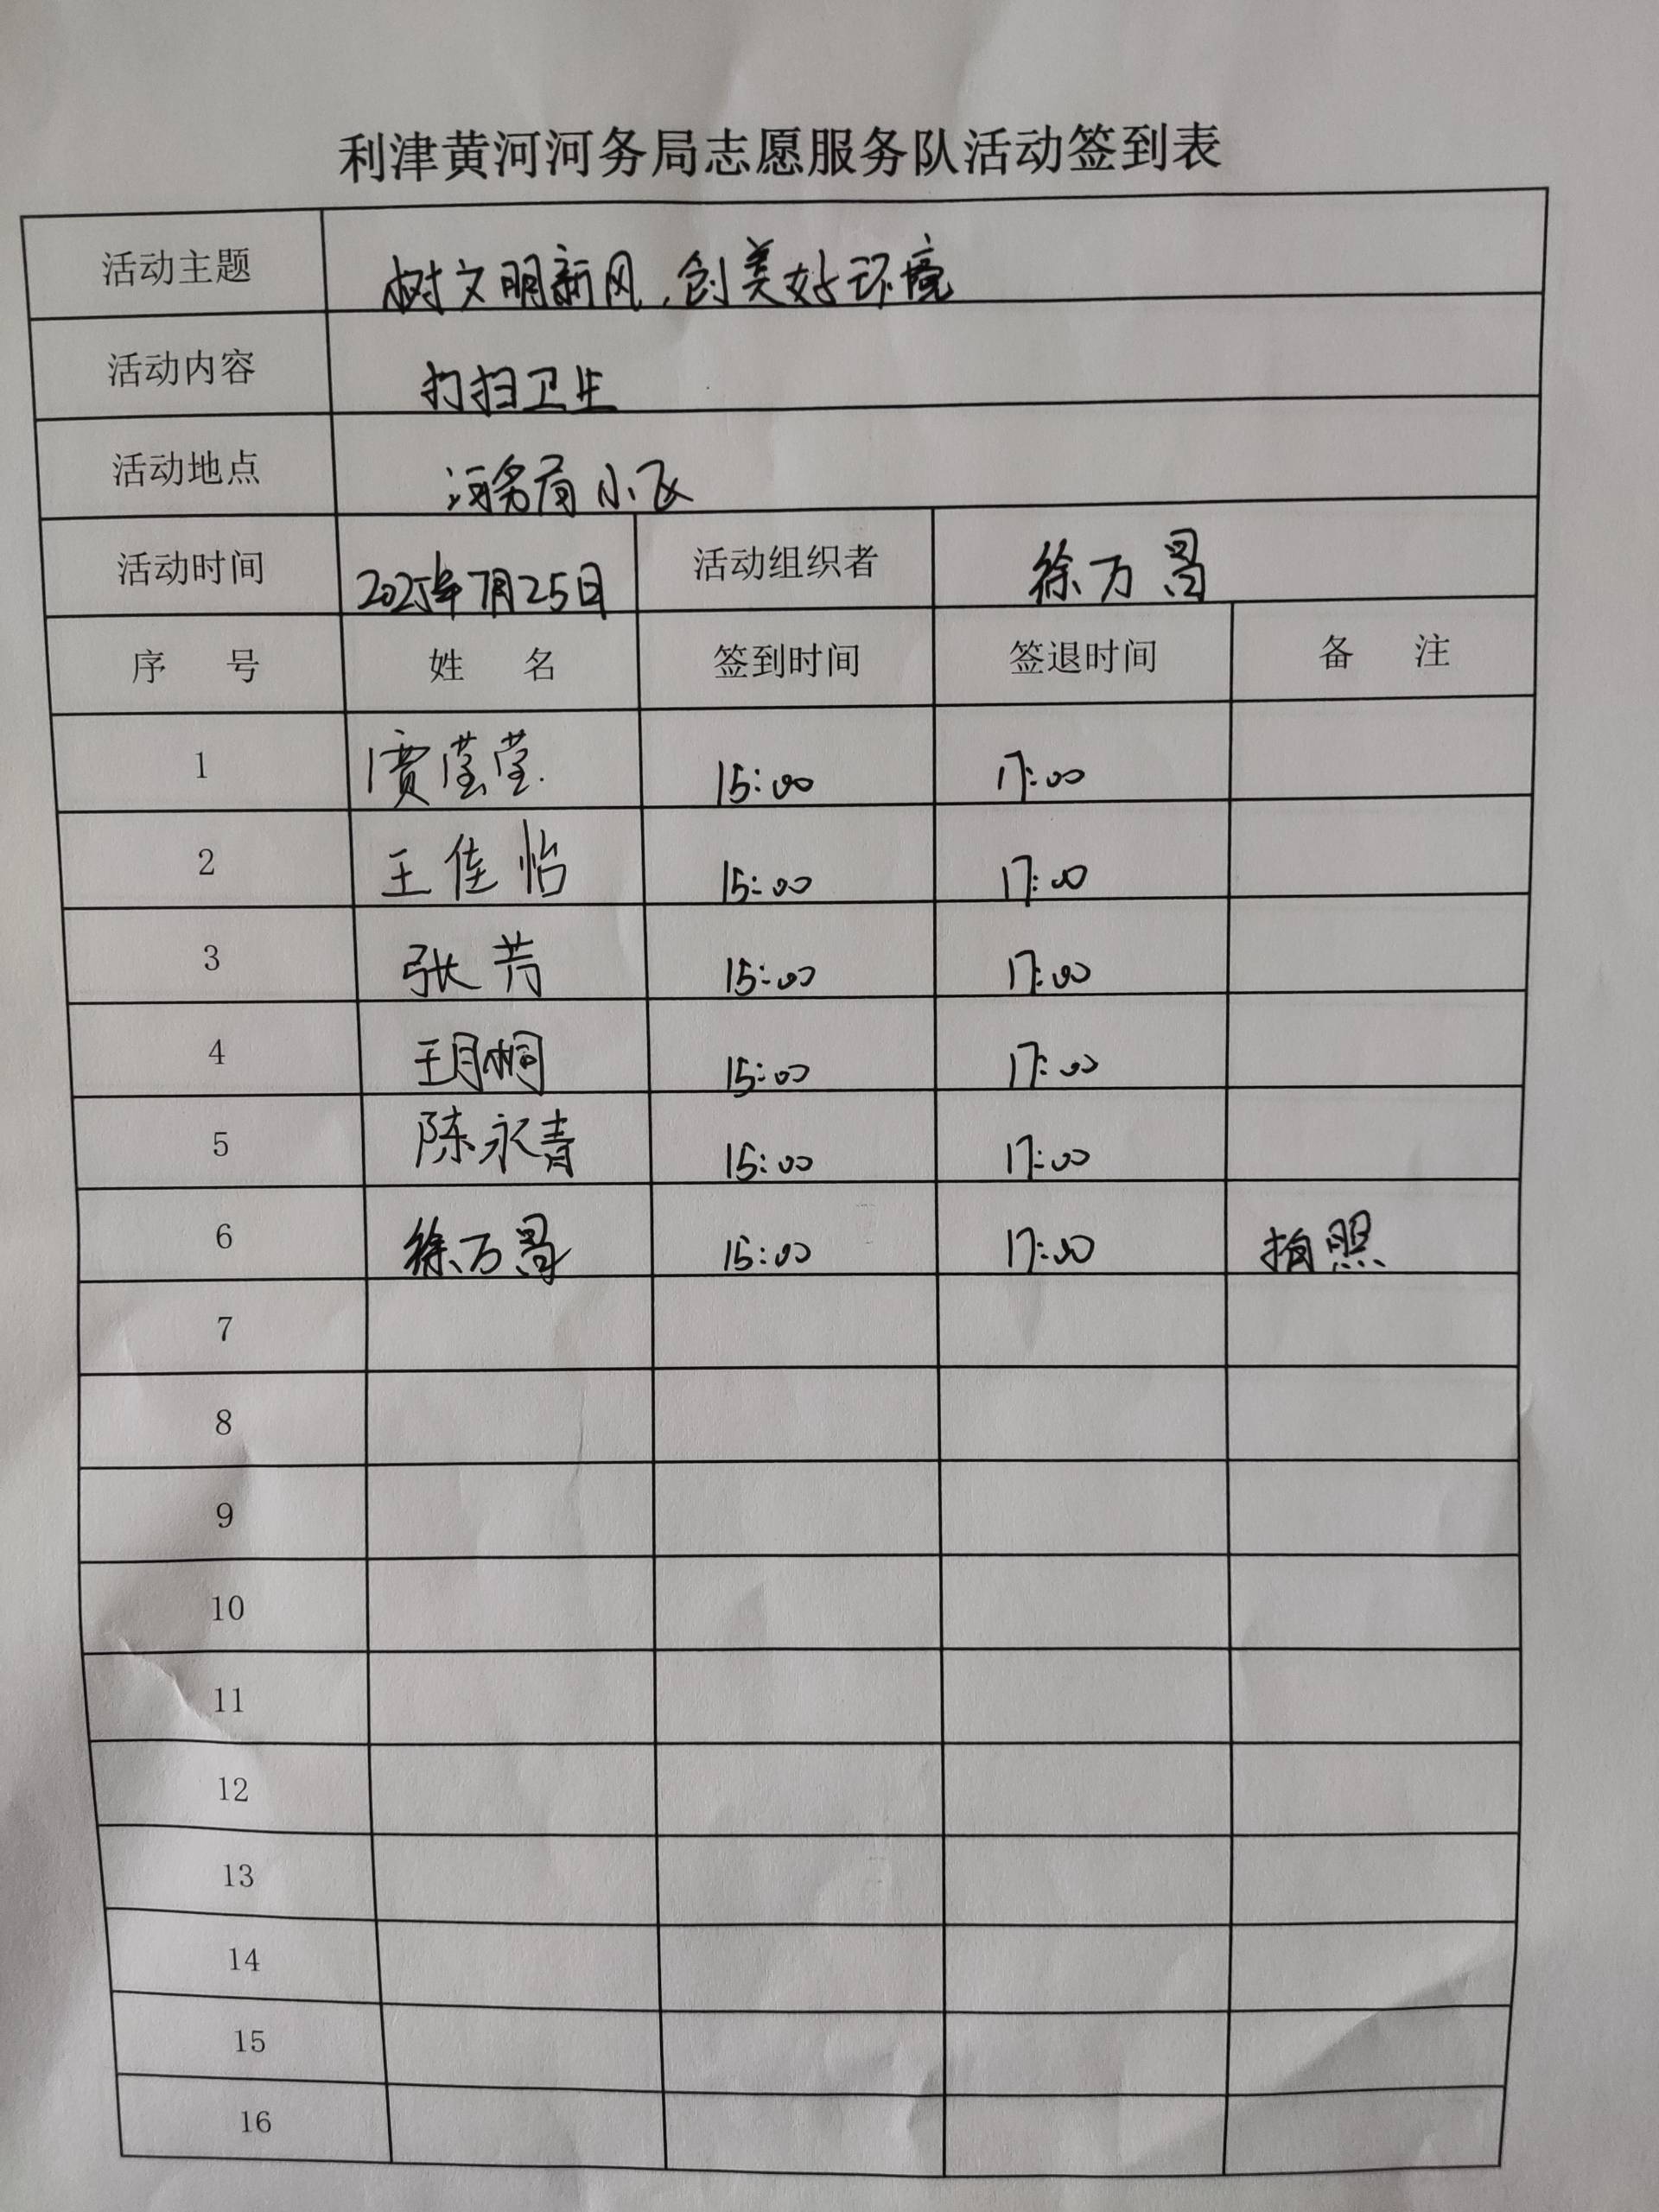 利津黄河河务局志愿服务队活动签到表
活动主题 树文明新风,创美好环境
活动内容 打扫卫生
活动地点 河务局小区
活动时间 2025年7月25日 活动组织者 徐万昌
序号 姓名 签到时间 签退时间 备注
1 贾莹莹 15:00 17:00
2 王佳怡 15:00 17:00
3 张芳 15:00 17:00
4 王月桐 15:00 17:00
5 陈永青 15:00 17:00
6 徐万昌 15:00 17:00 拍照
7
8
9
10
11
12
13
14
15
16